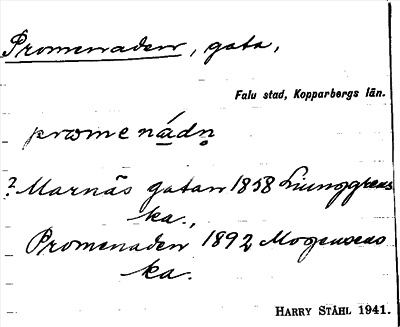 Promenaden, gata,
Falu stad, Kopparbergs län.
promenádn̥
? Marnäs gatan 1858 Ljunggrens
ka.,
Promenaden 1892 Mogensens
ka.
HARRY STÅHL 1941.